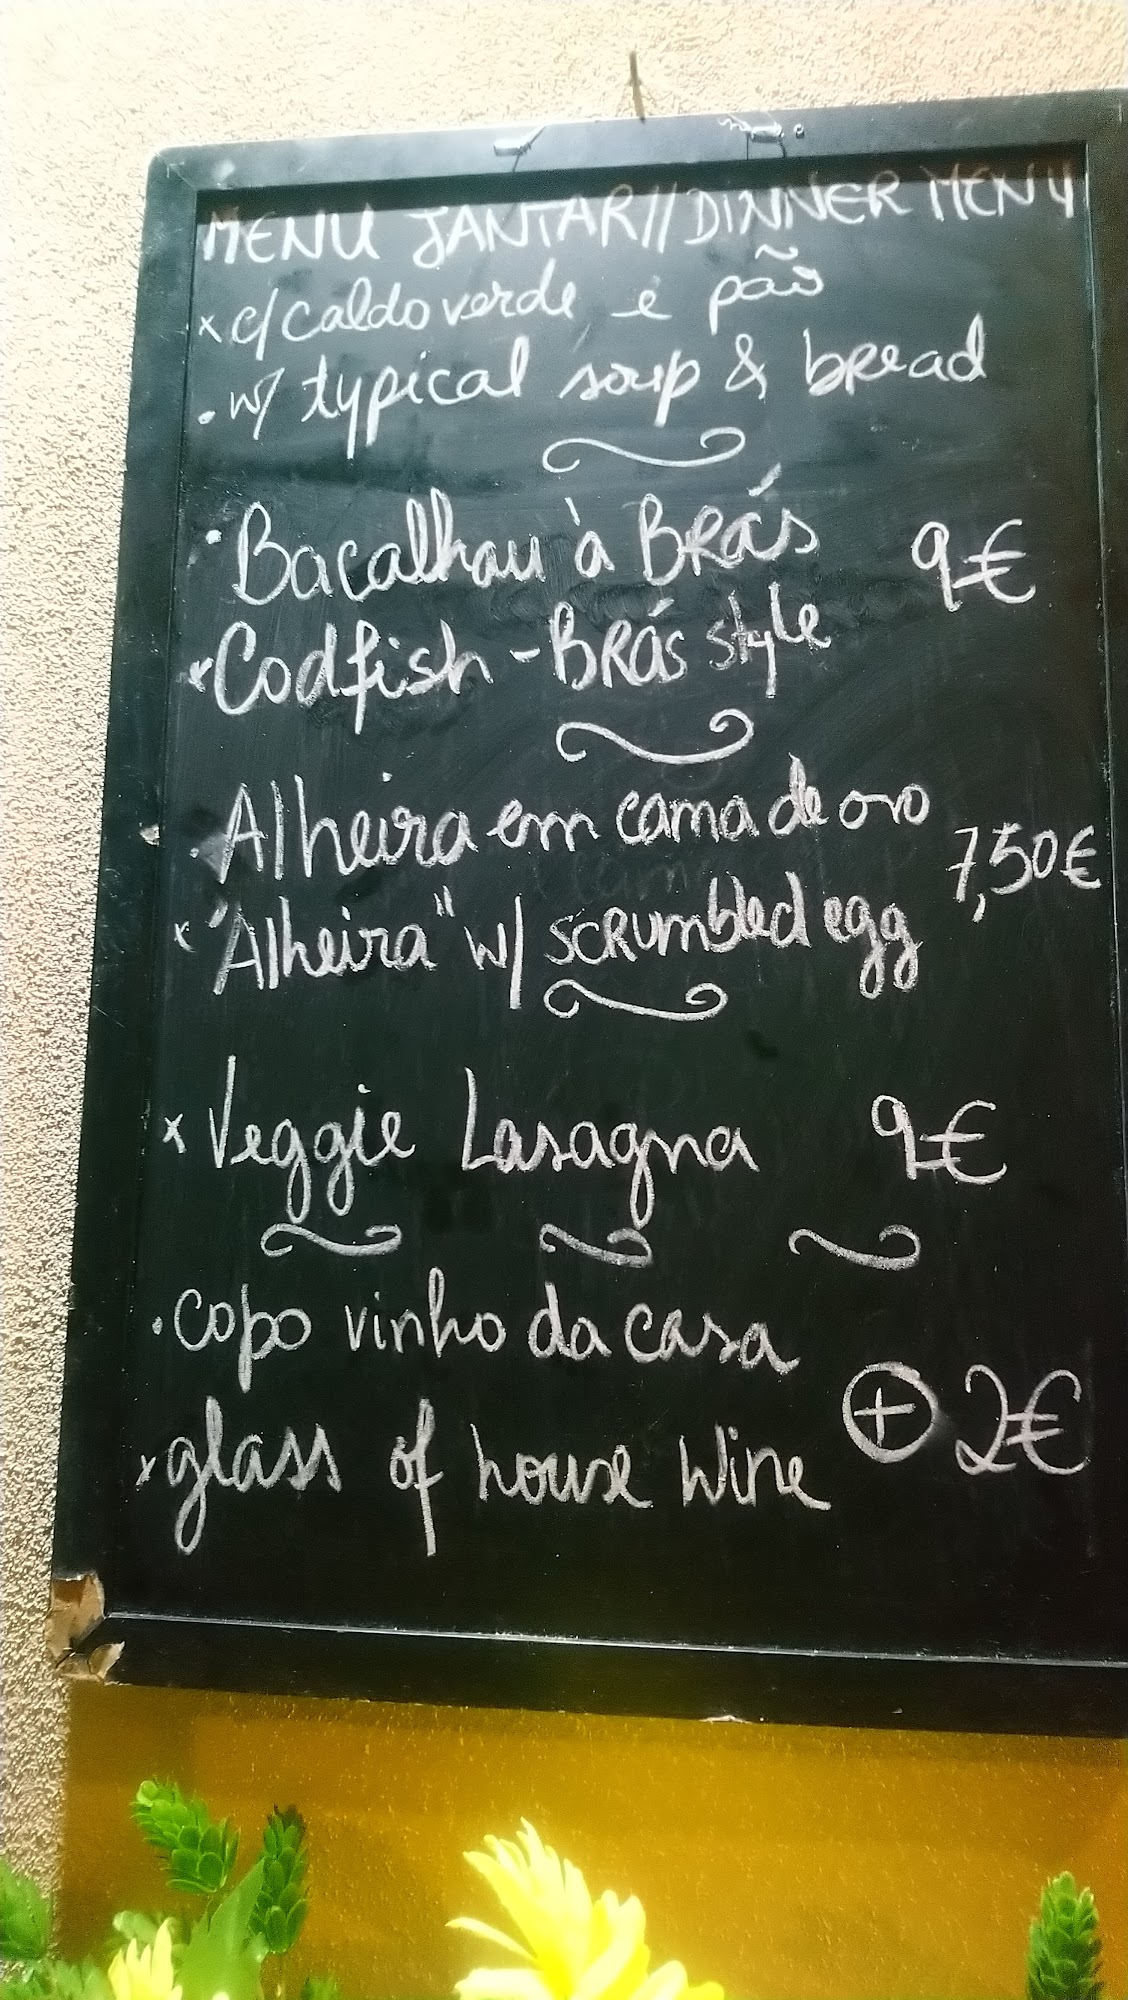 MENU JANTAR//DINNER MENU
x c/caldo verde e pão
. w/ typical soup & bread
. Bacalhau à BRás 9€
x Codfish - BRás style
. Alheira em cama de ovo 7,50€
x "Alheira" w/ scRumbled egg
x Veggie Lasagna 9€
. copo vinho da casa
+ 2€
x glass of house wine